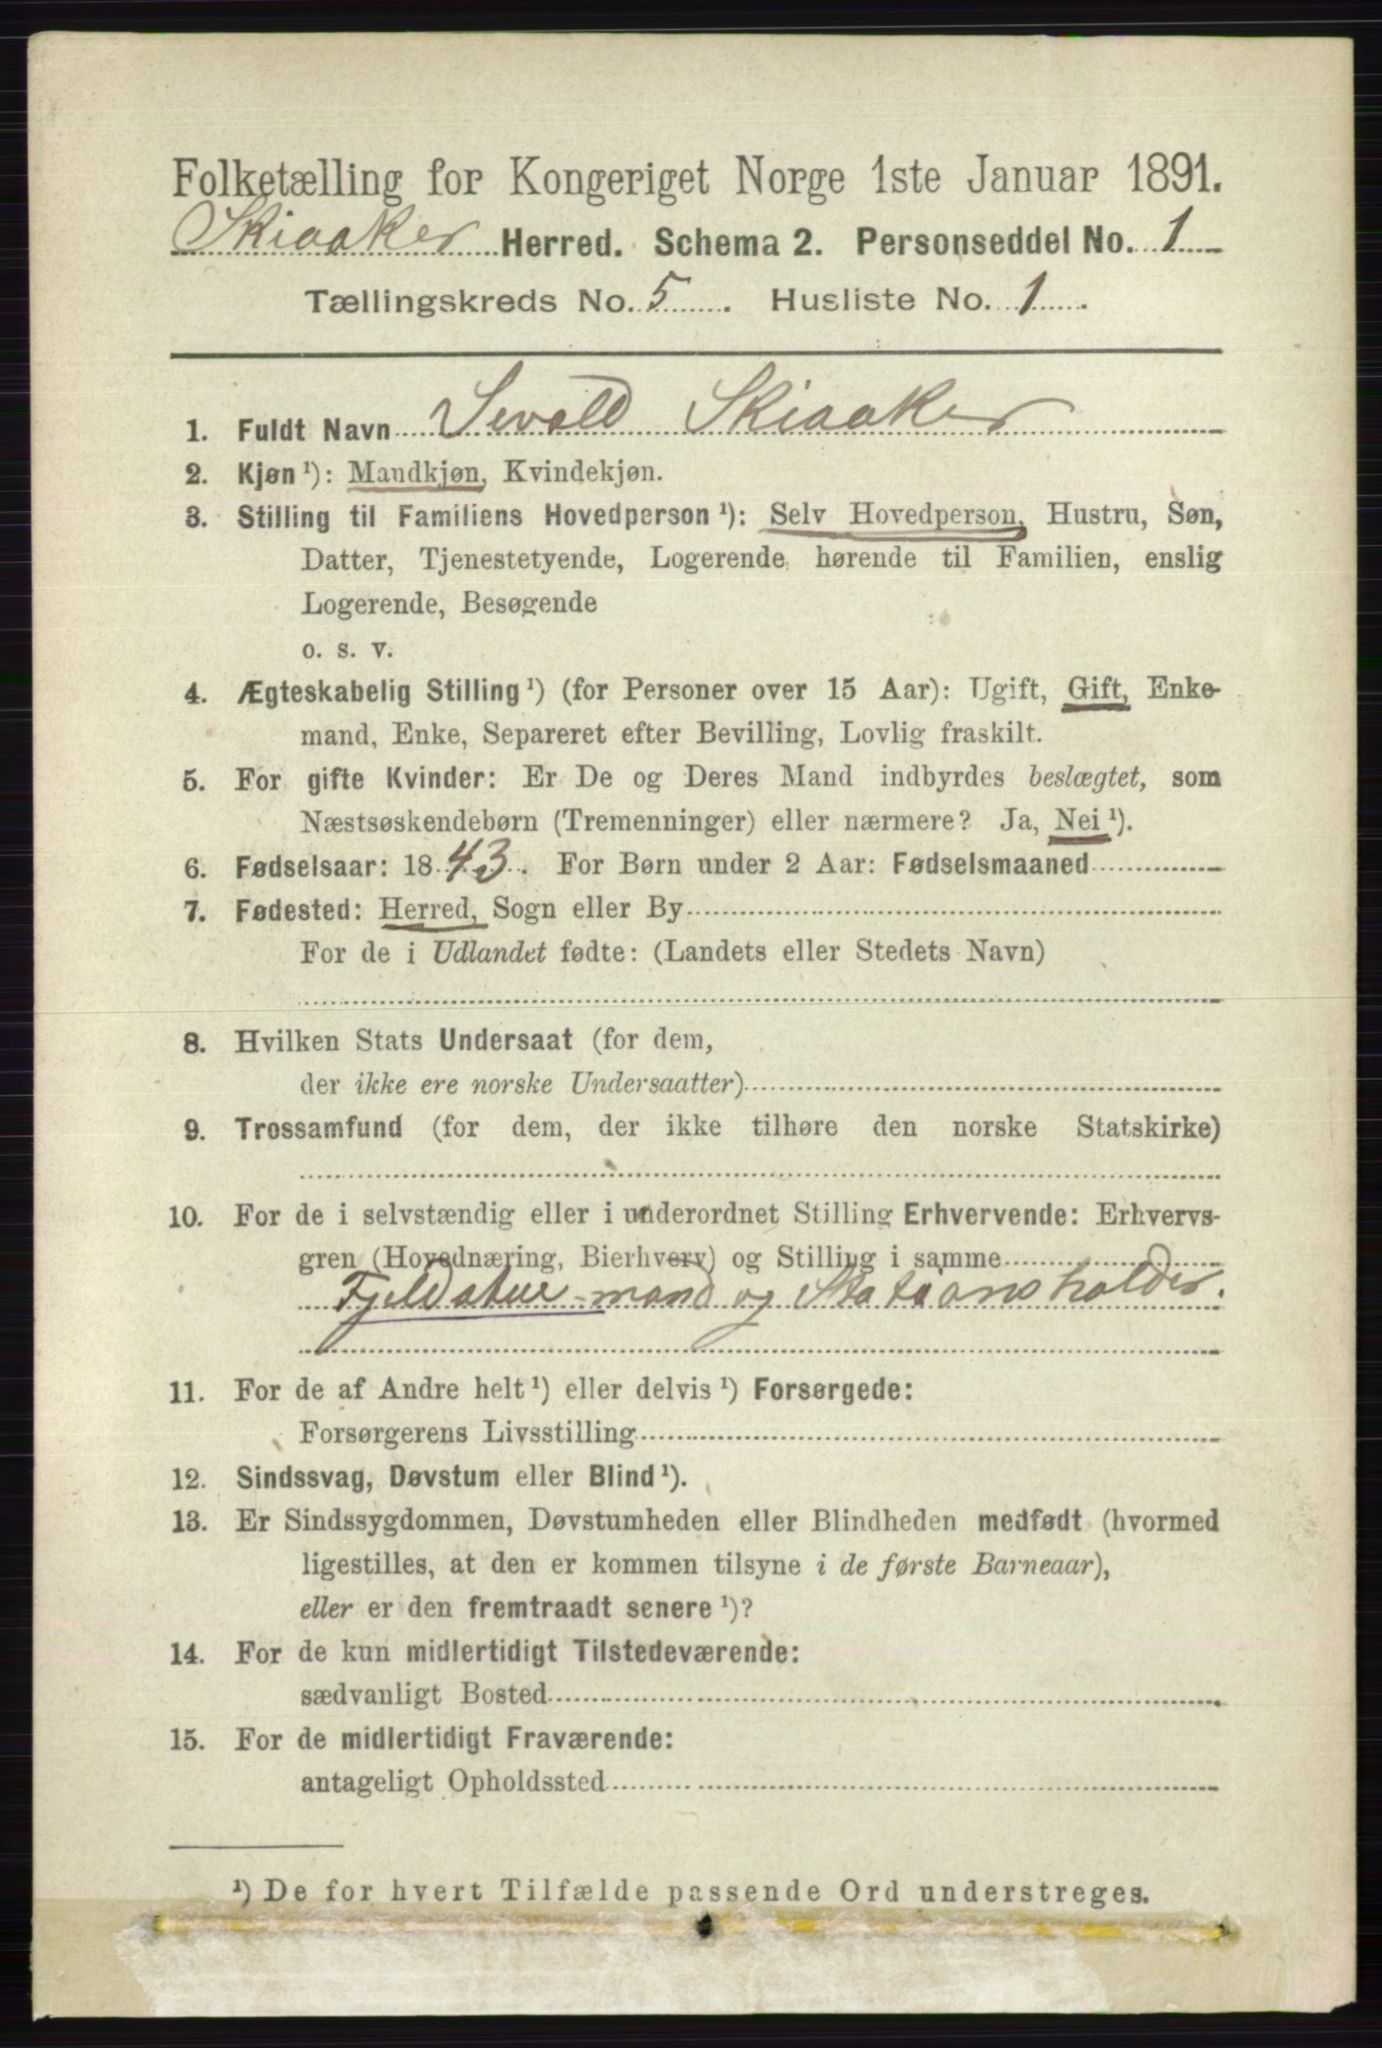 Folketælling for Kongeriget Norge 1ste Januar 1891.
Skiaaker Herred. Schema 2. Personseddel No. 1
Tællingskreds No. 5. Husliste No. 1.
1. Fuldt Navn Sevald Skiaaker
2. Kjøn ¹): Mandkjøn, Kvindekjøn.
3. Stilling til Familiens Hovedperson ¹): Selv Hovedperson, Hustru, Søn,
Datter, Tjenestetyende, Logerende hørende til Familien, enslig
Logerende, Besøgende
o. s. v.
4. Ægteskabelig Stilling ¹) (for Personer over 15 Aar): Ugift, Gift, Enke-
mand, Enke, Separeret efter Bevilling, Lovlig fraskilt.
5. For gifte Kvinder: Er De og Deres Mand indbyrdes beslægtet, som
Næstsøskendebørn (Tremenninger) eller nærmere? Ja, Nei ¹).
6. Fødselsaar: 1843. For Børn under 2 Aar: Fødselsmaaned
7. Fødested: Herred, Sogn eller By
For de i Udlandet fødte: (Landets eller Stedets Navn)
8. Hvilken Stats Undersaat (for dem,
der ikke ere norske Undersaatter)
9. Trossamfund (for dem, der ikke tilhøre den norske Statskirke)
10. For de i selvstændig eller i underordnet Stilling Erhvervende: Erhvervs-
gren (Hovednæring, Bierhverv) og Stilling i samme
Fjeldstue-mand og Stationsholder.
11. For de af Andre helt ¹) eller delvis ¹) Forsørgede:
Forsørgerens Livsstilling
12. Sindssvag, Døvstum eller Blind ¹).
13. Er Sindssygdommen, Døvstumheden eller Blindheden medfødt (hvormed
ligestilles, at den er kommen tilsyne i de første Barneaar),
eller er den fremtraadt senere ¹)?
14. For de kun midlertidigt Tilstedeværende:
sædvanligt Bosted
15. For de midlertidigt Fraværende:
antageligt Opholdssted
¹) De for hvert Tilfælde passende Ord understreges.